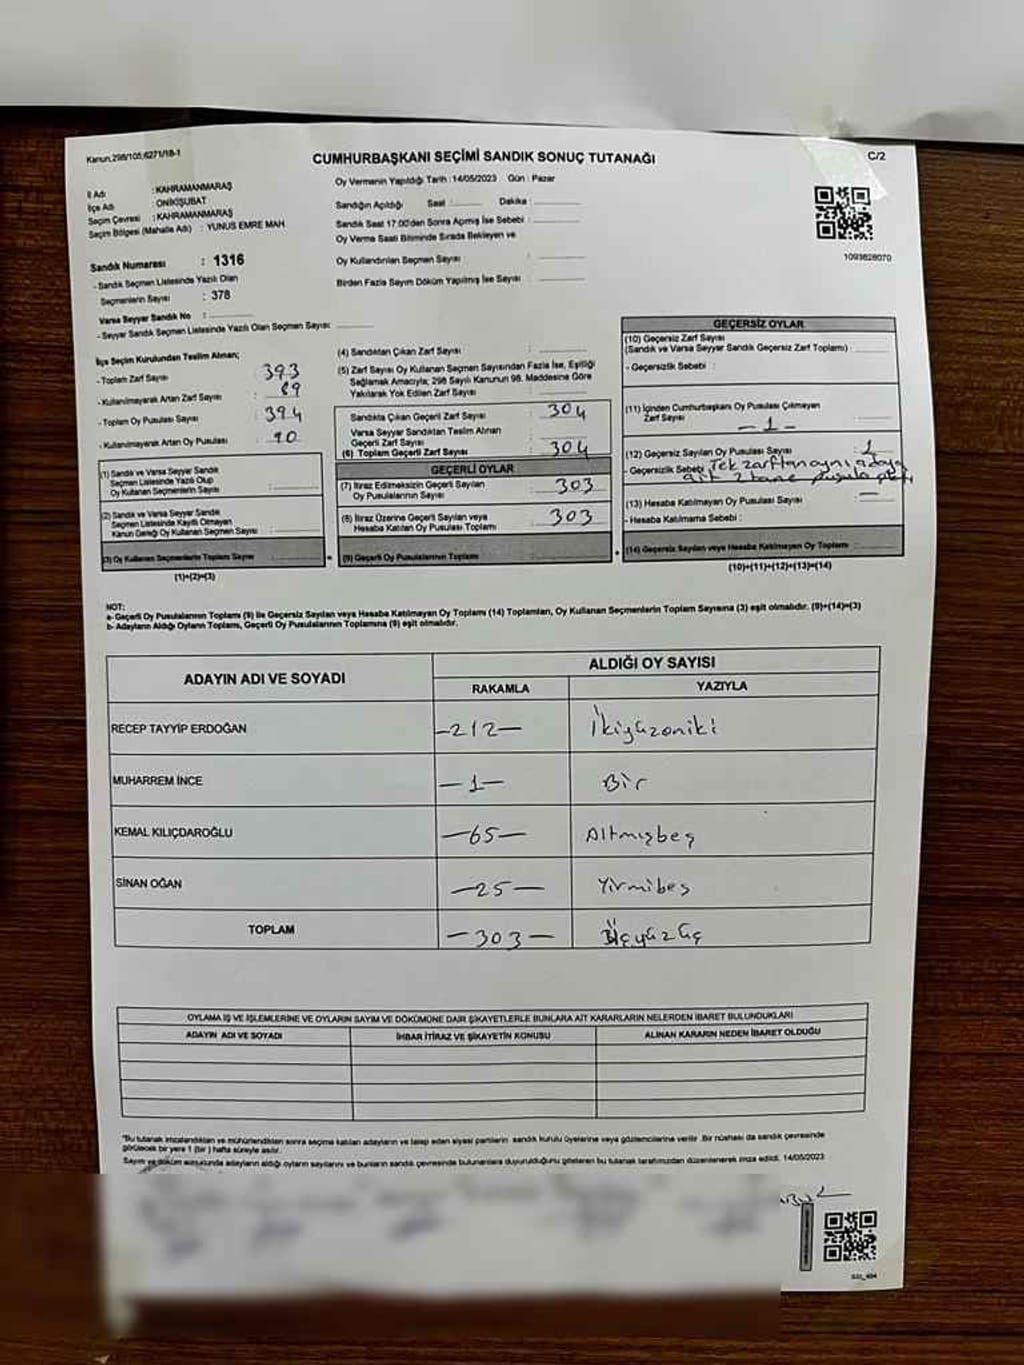 Kanun,298/105;6271/18-1
CUMHURBAŞKANI SEÇİMİ SANDIK SONUÇ TUTANAĞI
C/2
İl Adı : KAHRAMANMARAŞ
İlçe Adı : ONİKİŞUBAT
Seçim Çevresi : KAHRAMANMARAŞ
Seçim Bölgesi (Mahalle Adı) : YUNUS EMRE MAH
Sandık Numarası : 1316
- Sandık Seçmen Listesinde Yazılı Olan
Seçmenlerin Sayısı : 378
Varsa Seyyar Sandık No :
- Seyyar Sandık Seçmen Listesinde Yazılı Olan Seçmen Sayısı:
Oy Vermenin Yapıldığı Tarih :14/05/2023 Gün : Pazar
Sandığın Açıldığı Saat : Dakika :
Sandık Saat 17.00'den Sonra Açmış İse Sebebi :
Oy Verme Saati Bitiminde Sırada Bekleyen ve
Oy Kullandırılan Seçmen Sayısı :
Birden Fazla Sayım Döküm Yapılmış İse Sayısı :
1093828070
İlçe Seçim Kurulundan Teslim Alınan;
- Toplam Zarf Sayısı : 393
- Kullanılmayarak Artan Zarf Sayısı : 89
- Toplam Oy Pusulası Sayısı : 394
- Kullanılmayarak Artan Oy Pusulası : 90
(1) Sandık ve Varsa Seyyar Sandık
Seçmen Listesinde Yazılı Olup
Oy Kullanan Seçmenlerin Sayısı :
(2) Sandık ve Varsa Seyyar Sandık
Seçmen Listesinde Kayıtlı Olmayan
Kanun Gereği Oy Kullanan Seçmen Sayısı :
(3) Oy Kullanan Seçmenlerin Toplam Sayısı :
(1)+(2)=(3)
(4) Sandıktan Çıkan Zarf Sayısı :
(5) Zarf Sayısı Oy Kullanan Seçmen Sayısından Fazla İse, Eşitliği
Sağlamak Amacıyla; 298 Sayılı Kanunun 98. Maddesine Göre
Yakılarak Yok Edilen Zarf Sayısı :
Sandıkta Çıkan Geçerli Zarf Sayısı : 304
Varsa Seyyar Sandıktan Teslim Alınan
Geçerli Zarf Sayısı :
(6) Toplam Geçerli Zarf Sayısı : 304
GEÇERLİ OYLAR
(7) İtiraz Edilmeksizin Geçerli Sayılan
Oy Pusulasının Sayısı : 303
(8) İtiraz Üzerine Geçerli Sayılan veya
Hesaba Katılan Oy Pusulası Toplamı : 303
(9) Geçerli Oy Pusulalarının Toplamı :
GEÇERSİZ OYLAR
(10) Geçersiz Zarf Sayısı
(Sandık ve Varsa Seyyar Sandık Geçersiz Zarf Toplamı) :
- Geçersizlik Sebebi :
(11) İçinden Cumhurbaşkanı Oy Pusulası Çıkmayan
Zarf Sayısı :
— 1 —
(12) Geçersiz Sayılan Oy Pusulası Sayısı : 1
- Geçersizlik Sebebi : Tek zarftan aynı adaya
ait 2 tane pusula
(13) Hesaba Katılmayan Oy Pusulası Sayısı : —
- Hesaba Katılmama Sebebi :
(14) Geçersiz Sayılan veya Hesaba Katılmayan Oy Toplamı :
(10)+(11)+(12)+(13)=(14)
NOT:
a- Geçerli Oy Pusulalarının Toplamı (9) ile Geçersiz Sayılan veya Hesaba Katılmayan Oy Toplamı (14) Toplamları, Oy Kullanan Seçmenlerin Toplam Sayısına (3) eşit olmalıdır. (9)+(14)=(3)
b- Adayların Aldığı Oyların Toplamı, Geçerli Oy Pusulalarının Toplamına (9) eşit olmalıdır.
ADAYIN ADI VE SOYADI
ALDIĞI OY SAYISI
RAKAMLA YAZIYLA
RECEP TAYYİP ERDOĞAN —212— İkiyüzoniki
MUHARREM İNCE —1— Bir
KEMAL KILIÇDAROĞLU —65— Altmışbeş
SİNAN OĞAN —25— Yirmibeş
TOPLAM —303— Üçyüzüç
OYLAMA İŞ VE İŞLEMLERİNE VE OYLARIN SAYIM VE DÖKÜMÜNE DAİR ŞİKAYETLERLE BUNLARA AİT KARARLARIN NELERDEN İBARET BULUNDUKLARI
ADAYIN ADI VE SOYADI İHBAR İTİRAZ VE ŞİKAYETİN KONUSU ALINAN KARARIN NEDEN İBARET OLDUĞU
"Bu tutanak imzalandıktan ve mühürlendikten sonra seçime katılan adayların ve talep eden siyasi partilerin sandık kurulu üyelerine veya gözlemcilerine verilir. Bir nüshası da sandık çevresinde
görülecek bir yere 1 (bir) hafta süreyle asılır.
Sayım ve döküm sonucunda adayların aldığı oyların sayılarını ve bunların sandık çevresinde bulunanlara duyurulduğunu gösteren bu tutanak tarafımızdan düzenlenerek imza edildi. 14/05/2023